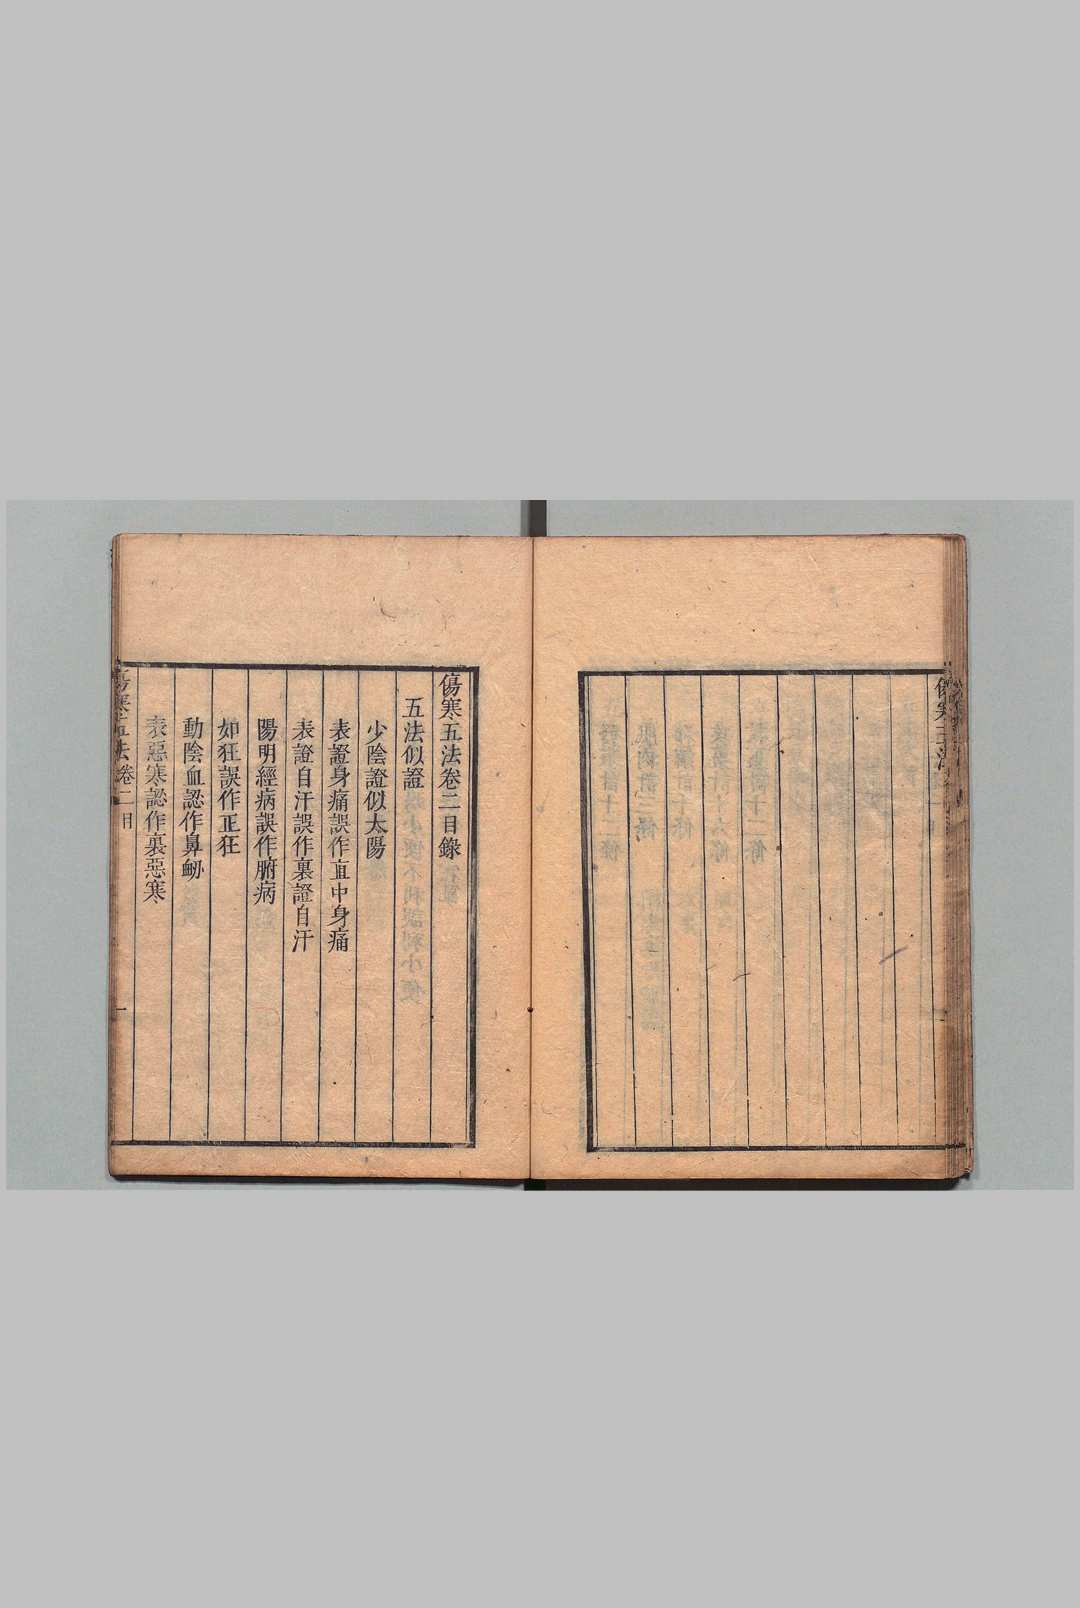 傷寒五法卷二目錄
五法似證
少陰證似太陽
表證身痛誤作直中身痛
表證自汗誤作裏證自汗
陽明經病誤作腑病
如狂誤作正狂
動陰血認作鼻衂
表惡寒認作裏惡寒
傷寒五法卷二目 一